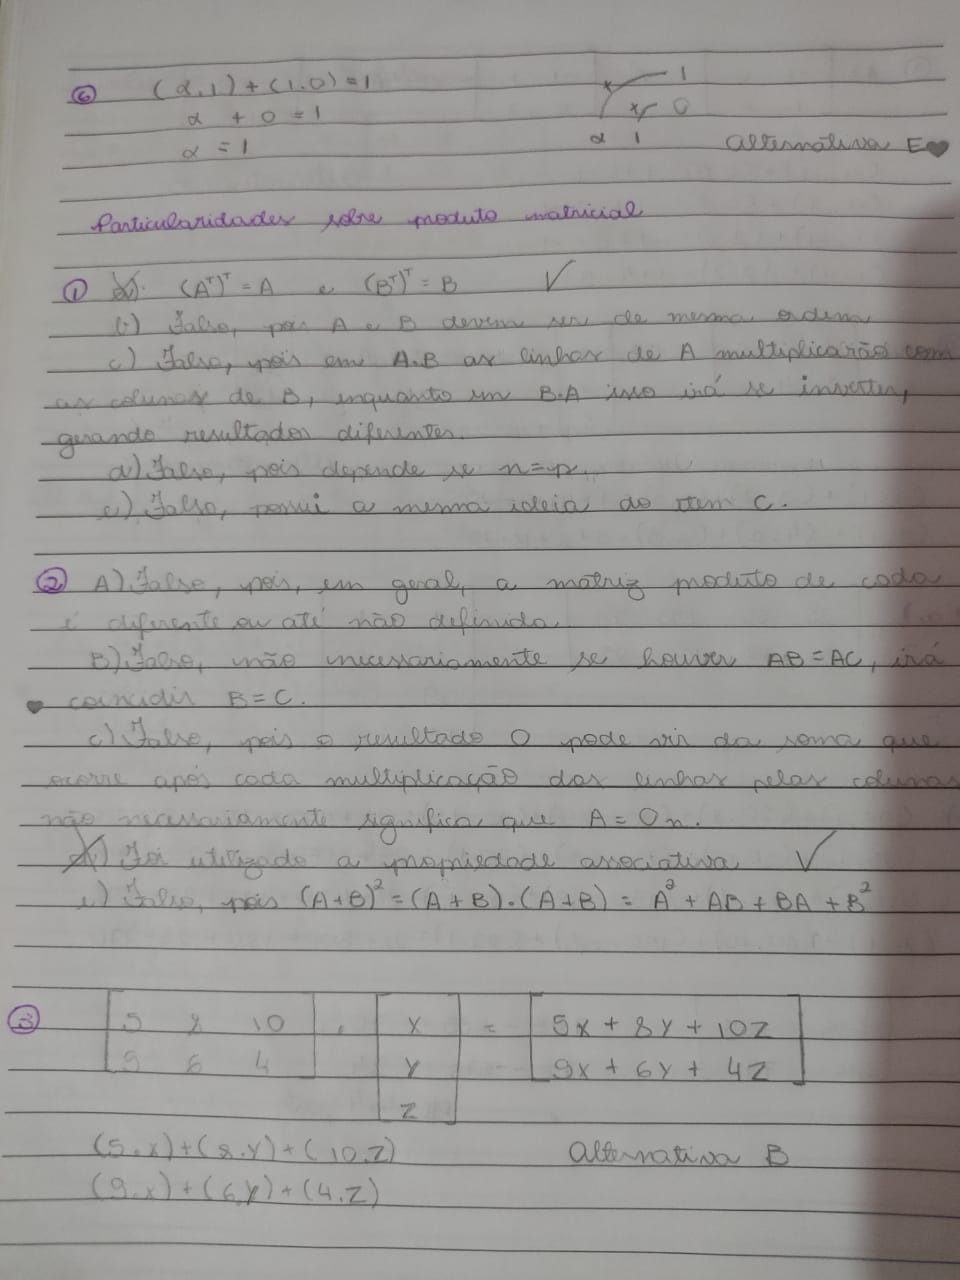 6 (α.1)+(1.0)=1 1
α + 0 = 1 0
α = 1 α 1 Alternativa E
Particularidades sobre produto matricial
1 a). (Aᵀ)ᵀ = A e (Bᵀ)ᵀ = B ✓
b) Falso, pois A e B devem ser de mesma ordem
c) Falso, pois em A.B as linhas de A multiplicarão com
as colunas de B, inquanto em B.A isso irá se inverter,
gerando resultados diferentes.
d) Falso, pois depende se n=p.
e) Falso, possui a mesma ideia do item C.
2 A) Falso, pois, em geral, a matriz produto de cada
é diferente ou até não definido.
B) Falso, não necessariamente se houver AB = AC, irá
coincidir B = C.
c) Falso, pois o resultado 0 pode vir da soma que
ocorre após cada multiplicação das linhas pelas colunas
não necessariamente significa que A = On.
d) Foi utilizado a propriedade associativa ✓
e) Falso, pois (A+B)² = (A+B).(A+B) = A² + AB + BA + B²
3 5 8 10 . x = 5x + 8y + 10z
9 6 4 y 9x + 6y + 4z
z
(5.x)+(8.y)+(10.z) Alternativa B
(9.x)+(6.y)+(4.z)